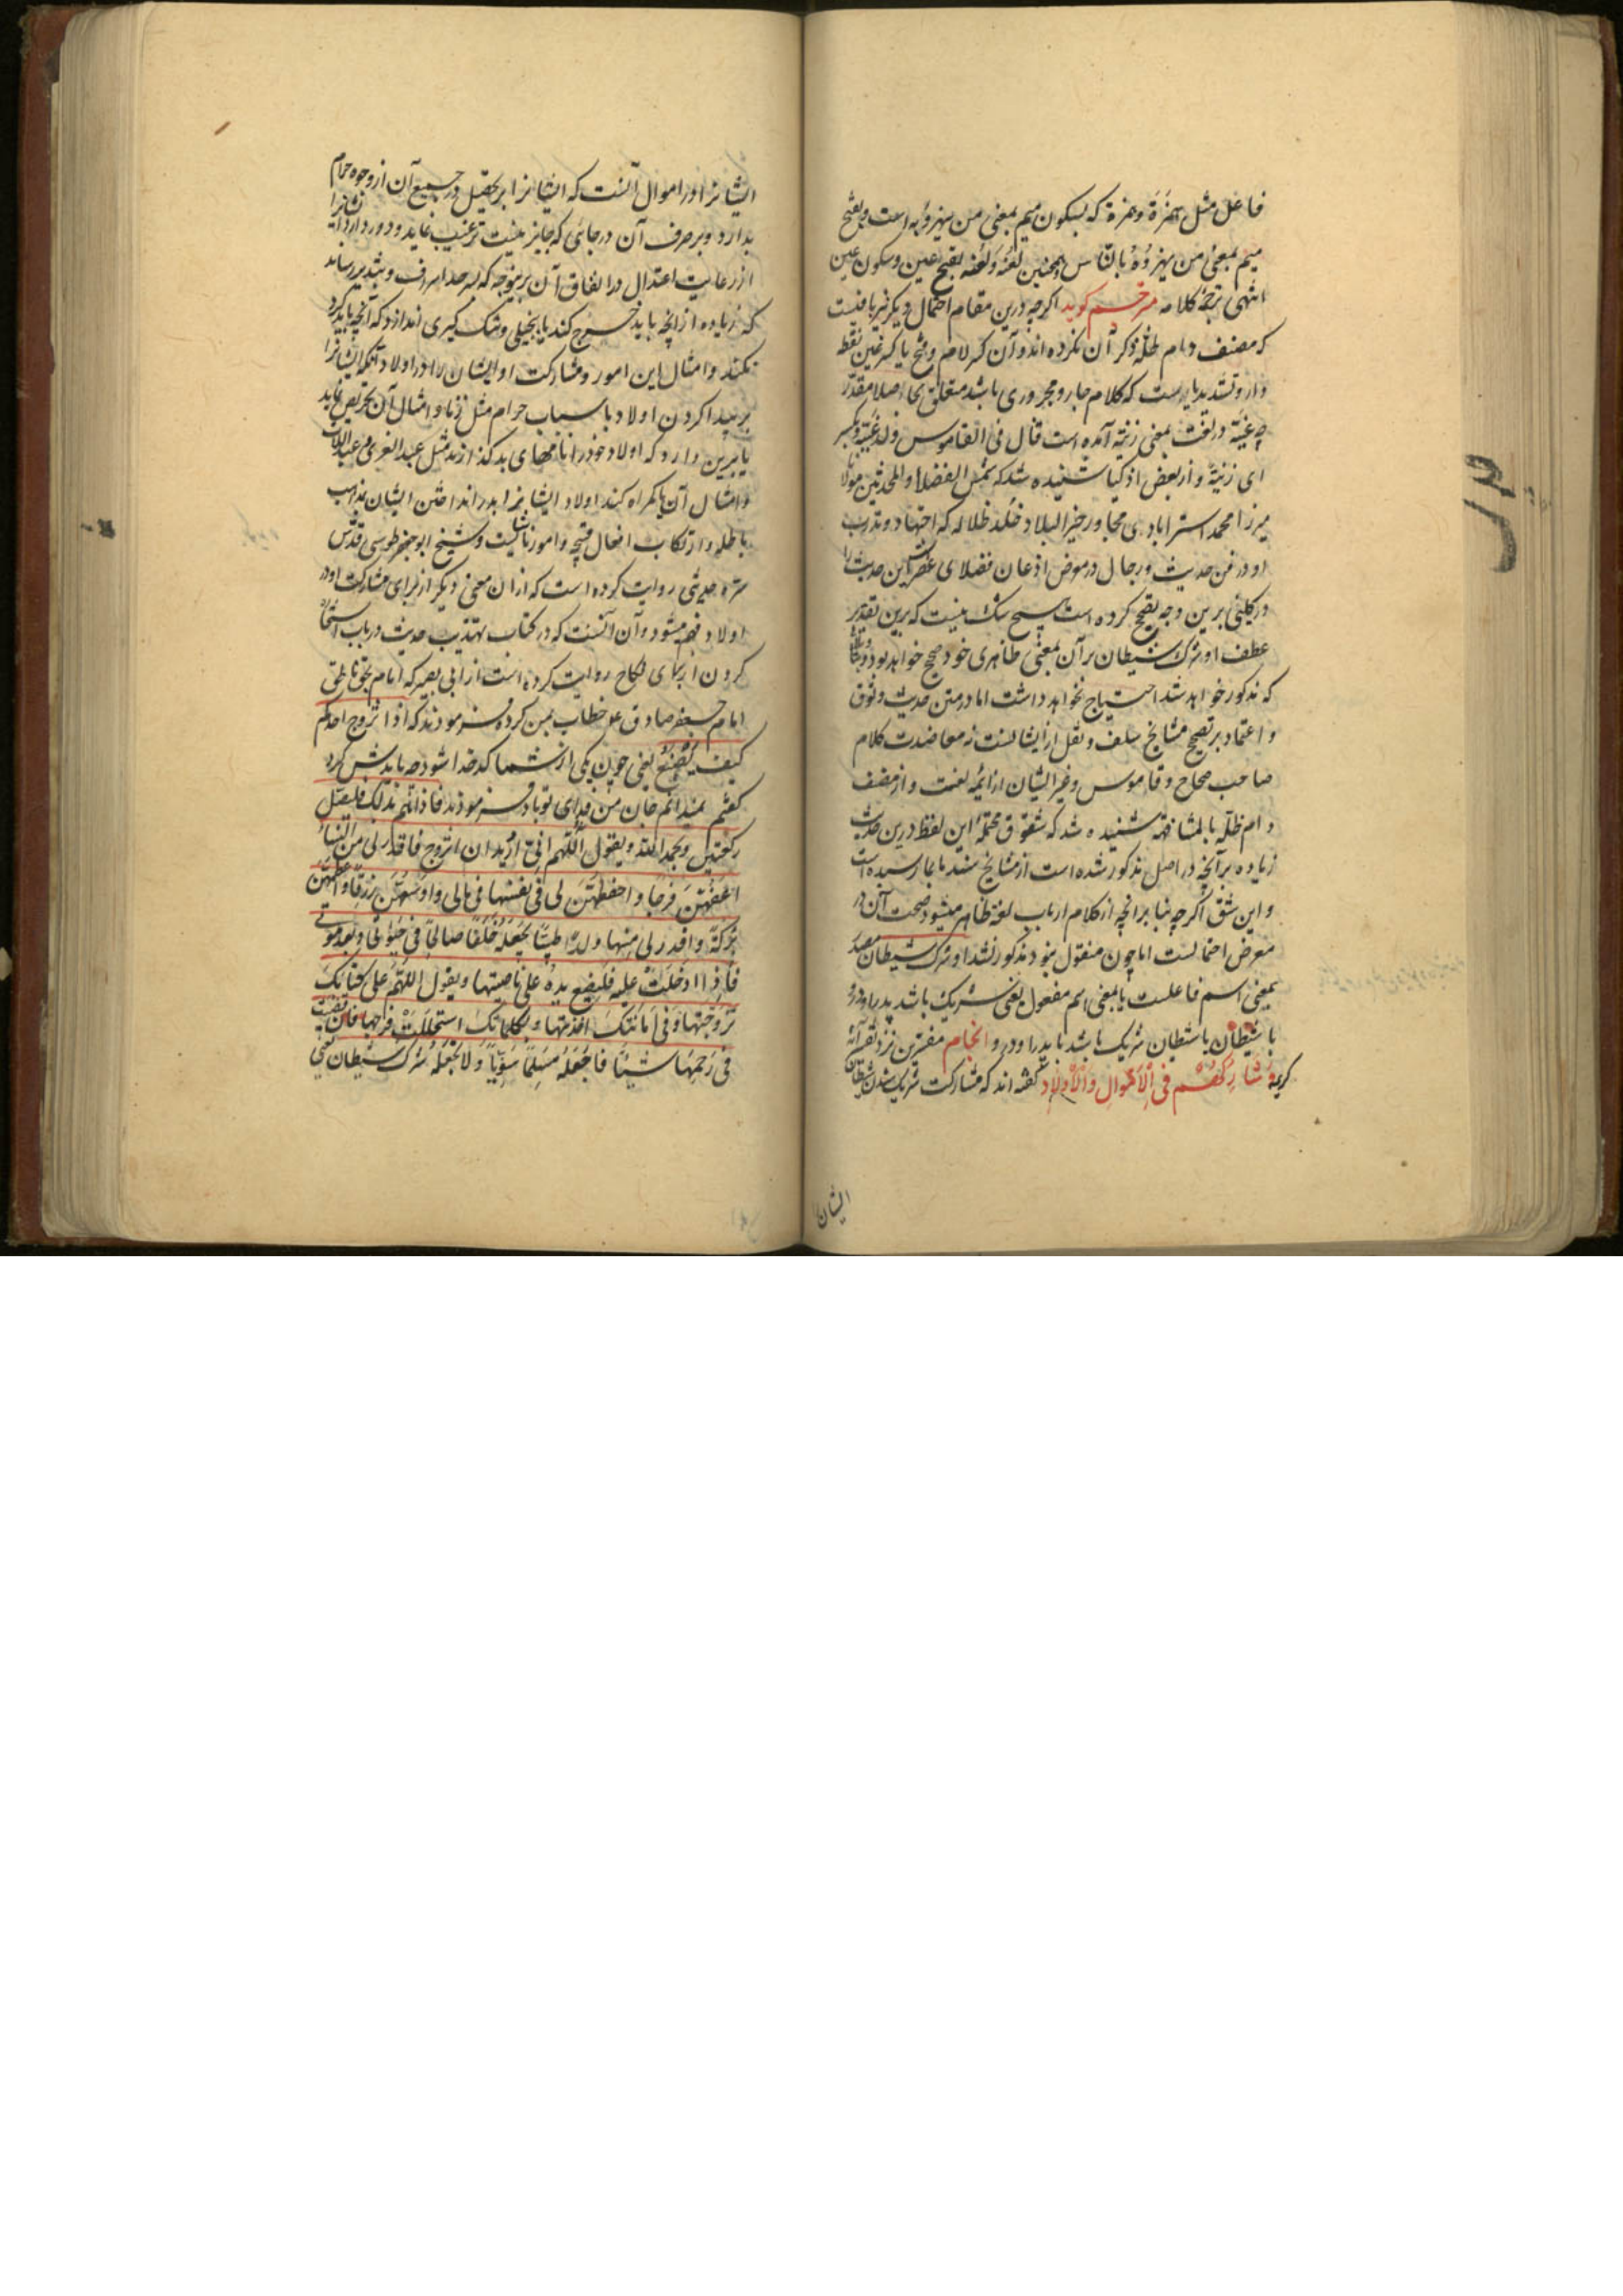 فاعل مثل همزة وهمزة که بسکون میم بمعنی من یهزؤ به است و بفتح
میم بمعنی من یهزؤه بالناس همچنین لعنة ولعنه بفتح عین وسکون عین
انتهی ترجمة کلامه مترجم کوید اکرچه درین مقام احتمال دیکر نیز یافتیست
که مصنف دام ظله ذکر آن نکرده اند و آن کسر لام و فتح یا کسر غین نقطه
دار وتشدید یا است که کلام جار و مجروری باشد متعلق بحاصلا مقدر
چه غیة در لغت بمعنی زنیة آمده است قال فی القاموس ولد غیة ویکسر
ای زنیة و از بعض اذکیا شنیده شد که شمس الفضلا والمحدثین مولانا
میرزا محمد استرابادی مجاور خیر البلاد خلد ظلاله که اجتهاد و تدرب
او در فن حدیث ورجال در معرض اذعان فضلای عصر است این حدیث را
در کلینی برین وجه تصحیح کرده است هیچ شک نیست که برین تقدیر
عطف او شرک شیطان بر آن بمعنی ظاهری خود صحیح خواهد بود و
که مذکور خواهد شد احتیاج نخواهد داشت اما در متن حدیث وثوق
و اعتماد بر تصحیح مشایخ سلف و نقل از ایشانست نه معاضدت کلام
صاحب صحاح و قاموس و غیر ایشان از ایمه لغت و از مصنف
دام ظله بالمشافهه شنیده شد که شقوق محتمله این لفظ درین حدیث
زیاده بر آنچه در اصل مذکور شده است از مشایخ سند بما نرسیده است
و این شق اکرچه بنا بر انچه از کلام ارباب لغة ظاهر میشود صحت آن در
معرض احتمالست اما چون منقول نبود مذکور نشد او شرک شیطان مصدر
بمعنی اسم فاعلست یا بمعنی اسم مفعول یعنی شریک باشد پدر او در او
با شیطان یا شیطان شریک باشد با پدر او در و انجام مفسرین نزد تفسیر آیه
کریمه وَشَارِکْهُمْ فِی الْأَمْوَالِ وَالْأَوْلَادِ گفته اند که مشارکت شریک شدن شیطان
ایشان
ایشانرا در اموال آنست که ایشانرا بر تحصیل و جمیع آن از وجوه حرام
بدارد و بر صرف آن در جائی که جایز نیست ترغیب نماید و دور دارد ایشانرا
از رعایت اعتدال در انفاق آن بر وجه که بسرحد اسراف و تبذیر رساند
که زیاده از آنچه باید خرج کند یا ببخیلی و تنک کیری اندازد که آنچه باید کرد
نکند و امثال این امور و مشارکت او ایشان را در اولاد آنکه ایشانرا
بر پیدا کردن اولاد باسباب حرام مثل زنا و امثال آن تحریص نماید
یا برین دارد که اولاد خود را نامهای بد کذارند مثل عبد العزی و عبد اللات
و امثال آن یا کمراه کند اولاد ایشانرا بدر انداختن ایشان بمذاهب
باطله و ارتکاب افعال قبیحه و امور ناشایست و شیخ ابو جعفر طوسی قدس
سره حدیثی روایت کرده است که از ان معنی دیکر از برای مشارکت او در
اولاد فهم میشود و آن آنست که در کتاب تهذیب حدیث در باب استخاره
کردن از برای نکاح روایت کرده است از ابی بصیر که امام بحق ناطق
امام جعفر صادق ع خطاب بمن کرده فرمودند که اذا تزوج احدکم
کیف یصنع یعنی چون یکی از شما کدخدا شود چه بایدش کرد
کفتم نمیدانم جان من فدای تو باد فرمودند فاذا هم بذلک فلیصل
رکعتین ویحمد الله ویقول اللهم انی ارید ان اتزوج فاقدر لی من النساء
اعفهن فرجا واحفظهن لی فی نفسها فی مالی واوسعهن رزقا واعظمهن
برکة واقدر لی منها ولدا طیبا تجعله خلفا صالحا فی حیوتی وبعد موتی
فاذا ادخلت علیه فلیضع یده علی ناصیتها ویقول اللهم علی کتابک
تزوجتها وفی امانتک اخذتها وبکلماتک استحللت فرجها فان قضیت
فی رحمها شیئا فاجعله مسلما سویا ولا تجعله شرک شیطان یعنی